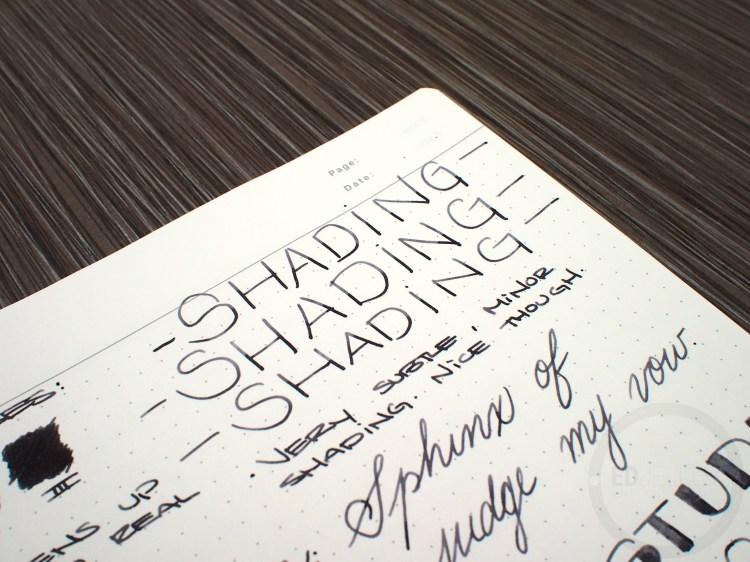 Page:
Date:
-SHADING-
-SHADING-
-SHADiNG-
· VERY SUBTLE, MiNOR
SHADING. NICE THOUGH.
III
UP
REAL
Sphinx of
judge my vow.